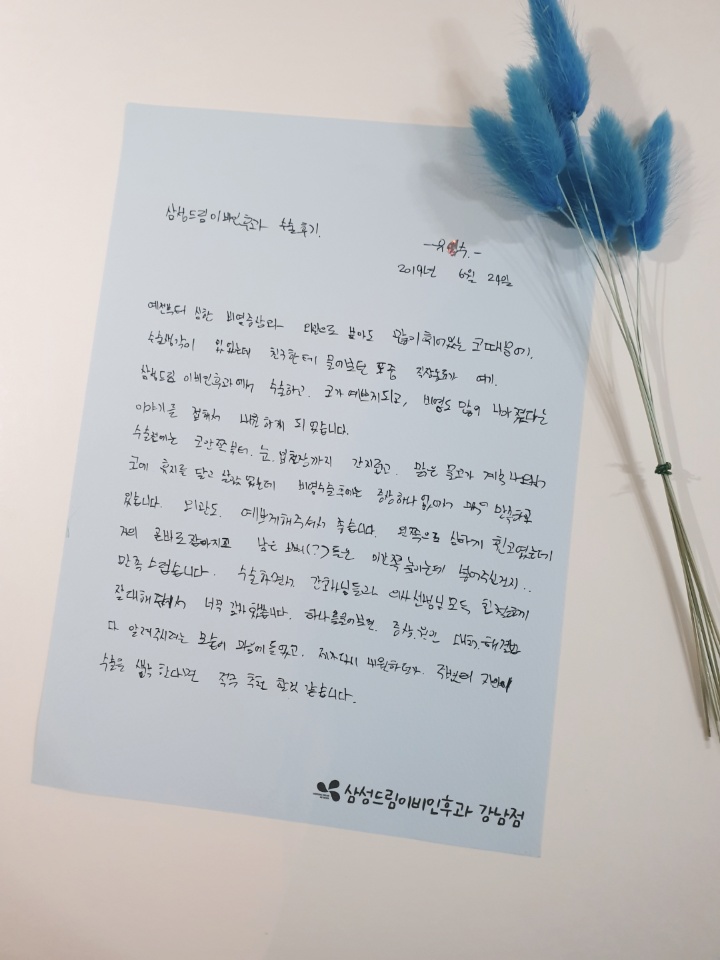 삼성드림이비인후과 수술후기.
2019년 6월 24일
예전부터 심한 비염증상과 외관으로 보아도 많이 휘어있는 코때문에.
수술생각이 있었는데 친구한테 물어보던 도중 직장동료가 여기.
삼성드림 이비인후과에서 수술하고. 코가 예쁘지되고, 비염도 많이 나아졌다는
이야기를 접해서 내원하게 되었습니다.
수술전에는 코안쪽부터. 눈. 입천장까지 간지럽고. 맑은 물코가 계속 나와서
코에 휴지를 달고 살았었는데 비염수술후에는 증상하나 없어서 만족하고
있습니다. 외관도. 예쁘게해주셔서 좋습니다. 왼쪽으로 심하게 휜코였는데
거의 곧바로잡아지고 남은 뼈(?)들은 미간쪽 높이는데 넣어주신건지..
만족스럽습니다. 간호사님들과 의사선생님 모두 친절하게
잘대해주셔서 너무 감사했습니다. 하나를물어보면. 증상. 원인 대처. 해결법
다 알려주시려는 모습에 마음에들었고. 제가다시 내원하던가. 주변에 지인이
수술을 생각 한다면 적극 추천 할것 같습니다.
삼성드림이비인후과 강남점